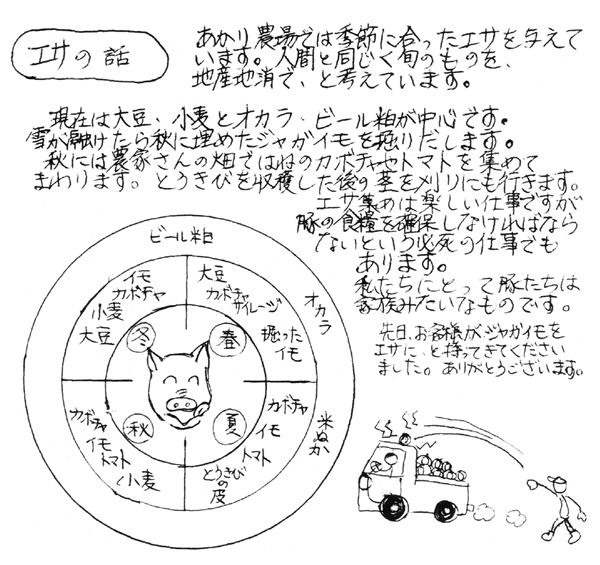 エサの話
あかり農場では季節に合ったエサを与えて
います。人間と同じく旬のものを、
地産地消で、と考えています。
現在は大豆、小麦とオカラ、ビール粕が中心です。
雪が融けたら秋に埋めたジャガイモを掘りだします。
秋には農家さんの畑ではねのカボチャやトマトを集めて
まわります。とうきびを収穫した後の茎を刈りにも行きます。
エサ集めは楽しい仕事ですが
豚の食糧を確保しなければなら
ないという必死の仕事でも
あります。
私たちにとって豚たちは
家族みたいなものです。
先日、お客様が、ジャガイモを
エサに、と持ってきてください
ました。ありがとうございます。
ビール粕
オカラ
米ぬか
冬
イモ
カボチャ
小麦
大豆
春
大豆
カボチャ
サイレージ
掘った
イモ
夏
カボチャ
イモ
トマト
とうきび
の皮
秋
カボチャ
イモ
トマト
小麦